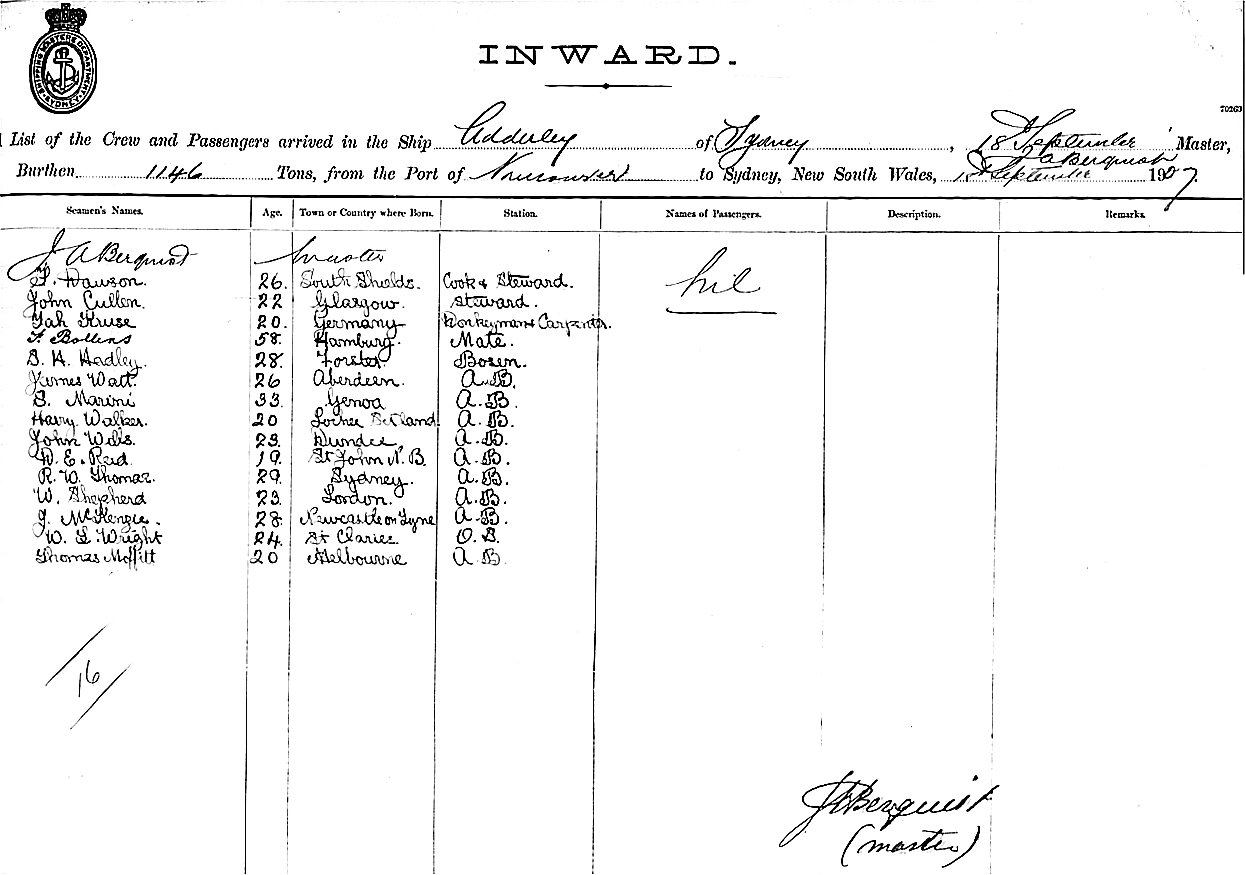 SHIPPING MASTERS DEPARTMENT SYDNEY
INWARD.
70263
List of the Crew and Passengers arrived in the Ship Adderley of Sydney, 18 September Master,
J A Berquist
Burthen 1146 Tons, from the Port of to Sydney, New South Wales, 18 September 1907.
Seamen's Names. Age. Town or Country where Born. Station. Names of Passengers. Description. Remarks.
J A Berquist Master nil
F. Dawson. 26. South Shields. Cook & Steward.
John Cullen. 22 Glasgow. Steward.
Jah Kruse 20. Germany Donkeyman & Carpenter.
F. Bollens 58. Hamburg. Mate.
S. H. Hadley. 28. Forster. Bosen.
James Watt. 26 Aberdeen. A.B.
S. Marini 33. Genoa A.B.
Harry Walker. 20 A.B.
John Wills. 23. Dundee. A.B.
W. E. Reid. 19. St John N.B. A.B.
R. W. Thomas. 29. Sydney. A.B.
W. Shepherd 23. London. A.B.
J. McKenzie. 28. Newcastle on Tyne A.B.
W. L Wright 24. St O.S.
Thomas Moffitt 20 Melbourne A.B.
16
J A Berquist
(master)